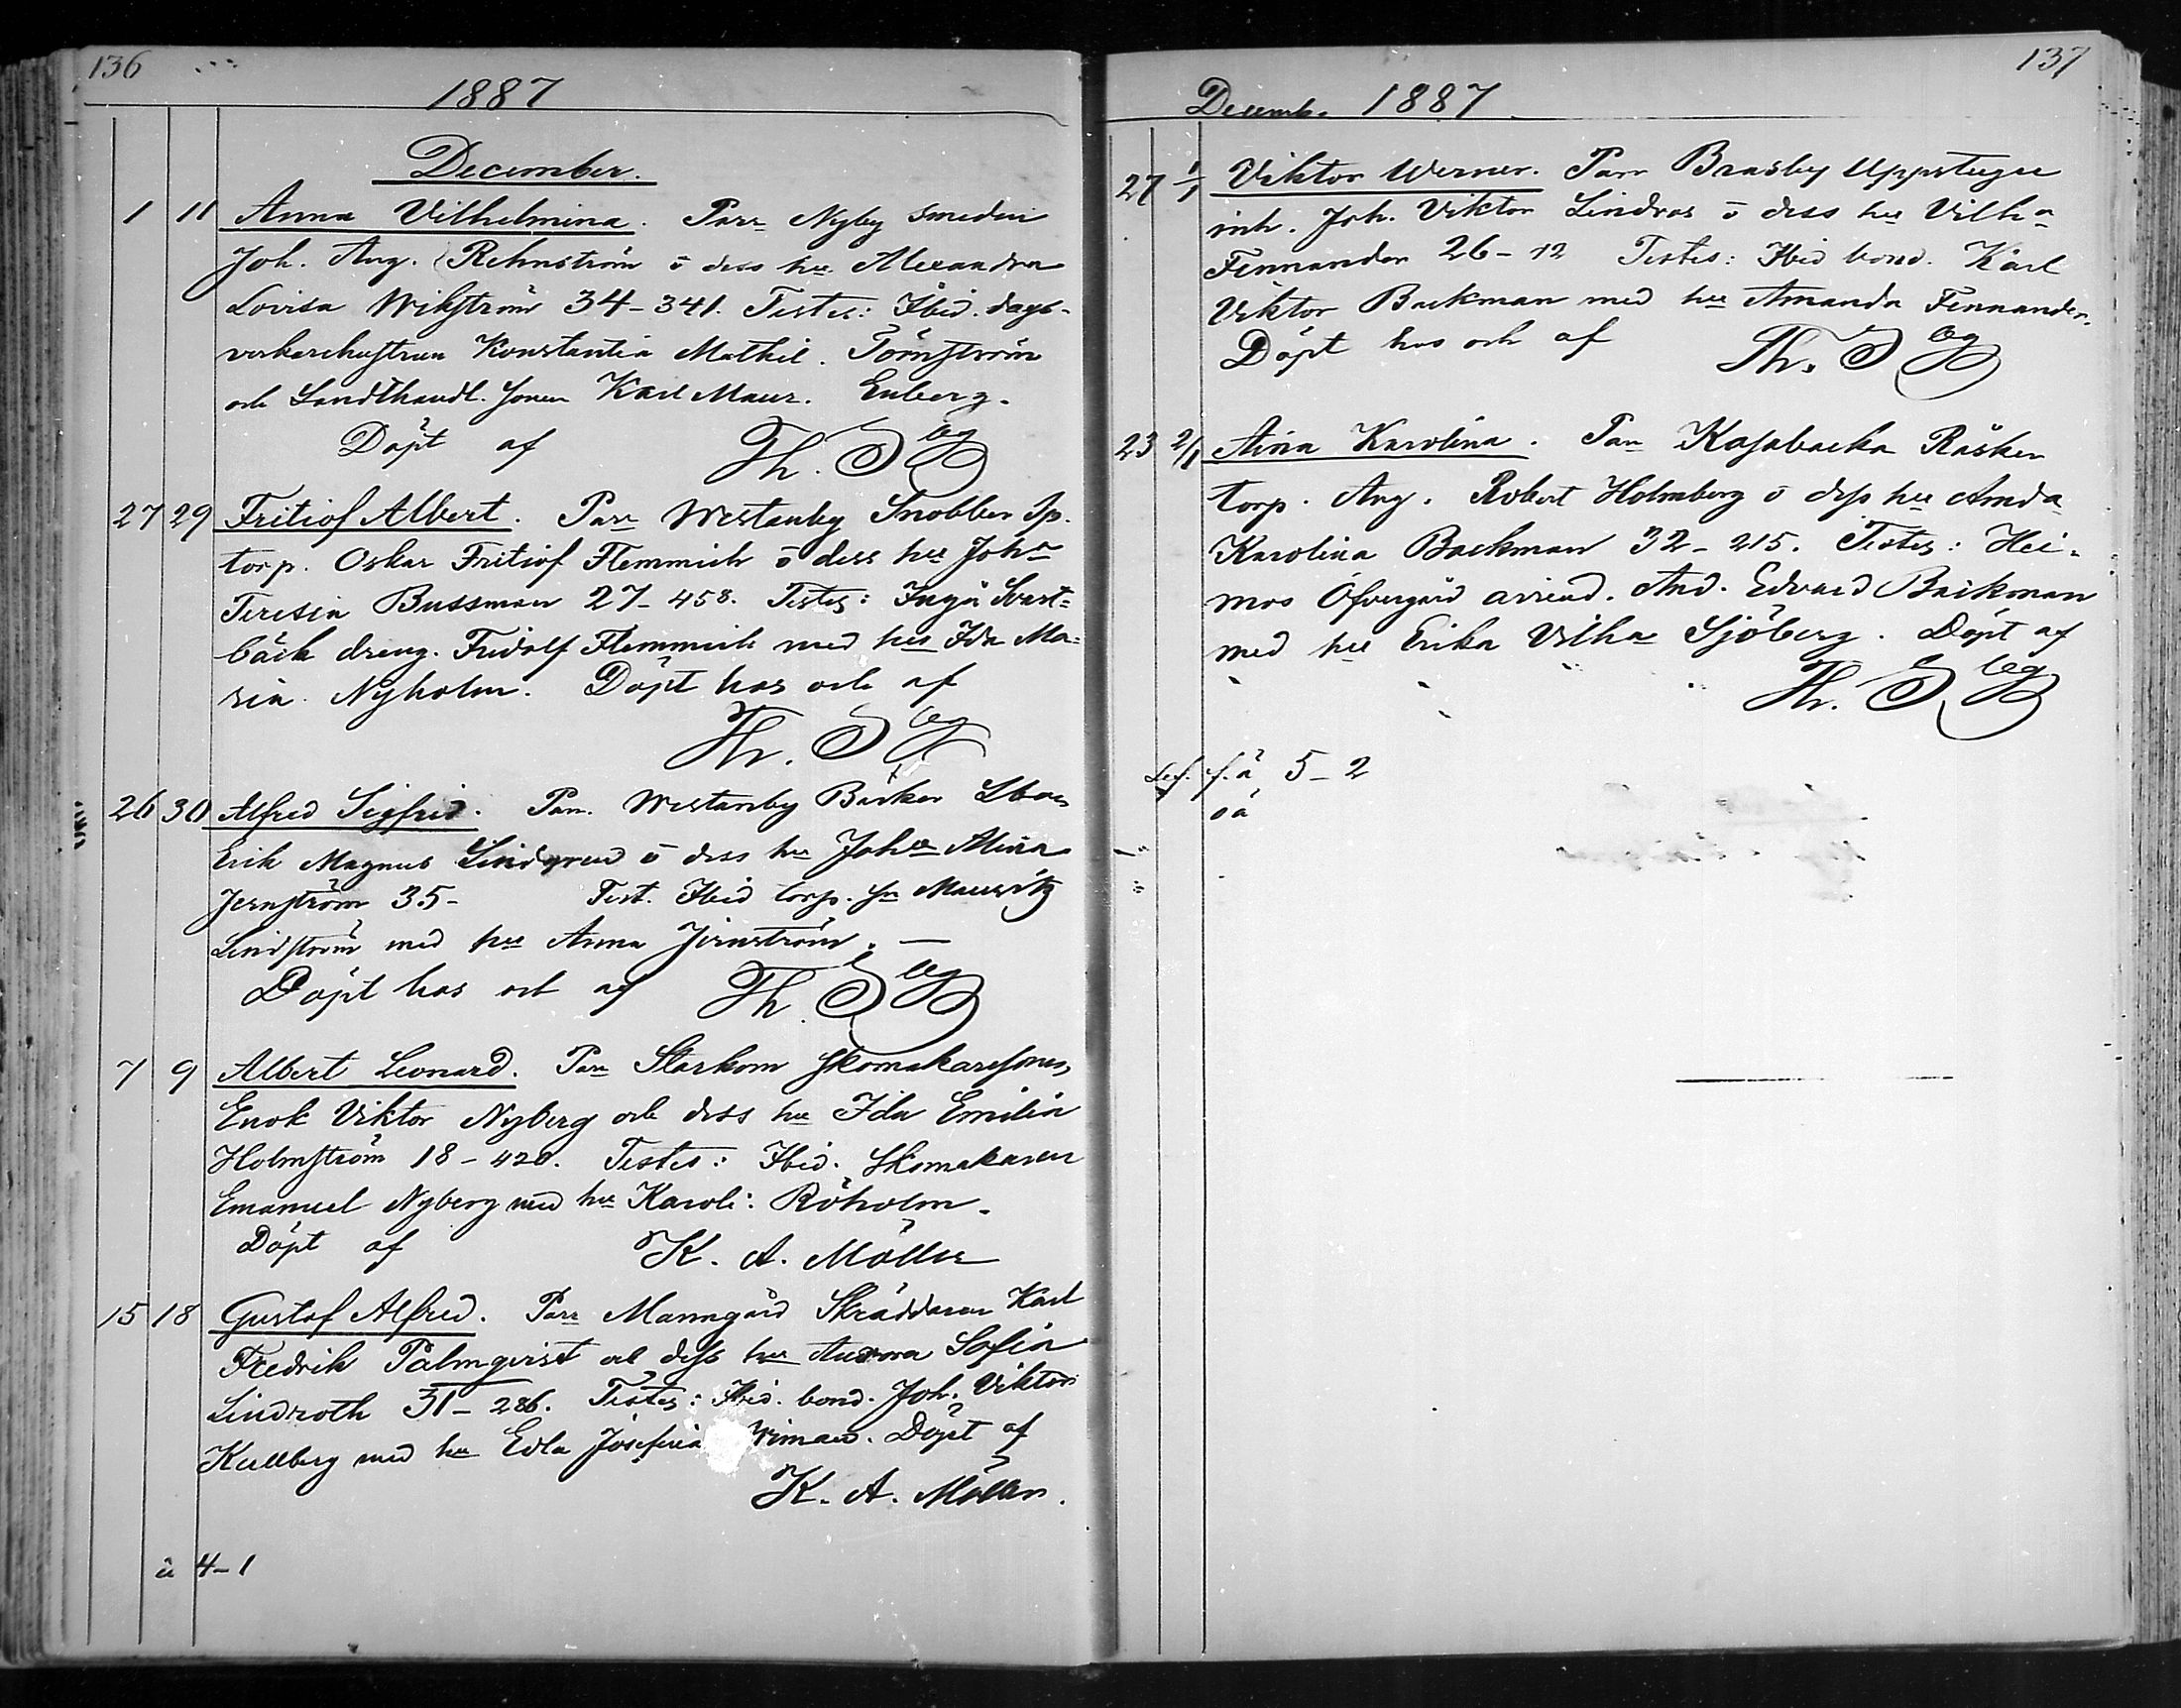 136
1887
December.
1 11 Anna Vilhelmina. Parr Nyby Smeden
Joh. Aug. Rehnström o dess hu Alexandra
Lovisa Wikström 34-341. Testes: Ibid. dags-
verkarehustrun Konstantia Mathil. Törnström
och Landthandl. sonen Karl Maur. Enberg.
Döpt af Th.
27 29 Fritiof Albert. Parr Westanby Snobben Sp.
torp. Oskar Fritiof Flemmich o dess hu Joha
Teresia Bussman 27-458. Testes: Ingå Svart-
bäck dreng. Fridolf Flemmich med hu Ida Ma-
ria Nyholm. Döpt hos och af
Th.
26 30 Alfred Sigfrid. Parr. Westanby Backer
Erik Magnus Lindgren o dess hu Joha Mina
Jernström 35- Test. Ibid torp. sn Mauritz
Lindström med hu Anna Jernström. —
Döpt hos och af Th.
7 9 Albert Leonard. Parr Starkom Skomakaresonen
Enok Viktor Nyberg och dess hu Ida Emilia
Holmström 18-420. Testes: Ibid. Skomakaren
Emanuel Nyberg med hu Karoli: Röholm.
Döpt af K. A. Möller
15 18 Gustaf Alfred. Parr Manngård Skräddaren Karl
Fredrik Palmqvist och dess hu Aurora Sofia
Lindroth 31-286. Testes: Ibid. bond. Joh. Viktor
Kullberg med hu Edla Josefina Wiman. Döpt af
K. A. Möller.
ä 4-1
137
Decemb. 1887
27 1/1 Viktor Werner. Parr Brasby Uppstugu
inh. Joh. Viktor Lindros o dess hu Vilha
Fennander 26-12 Testes: Ibid bond. Karl
Viktor Backman med hu Amanda Fennander.
Döpt hos och af Th.
23 2/1 Aina Karolina. Parr Kasabacka Räsker
torp. Aug. Robert Holmberg o dess hu Amda
Karolina Backman 32-215. Testes: Hei-
mos Öfvergård arrend. And. Edvard Backman
med hu Erika Vilha Sjöberg. Döpt af
Th.
Lef. f. ä 5-2
o ä